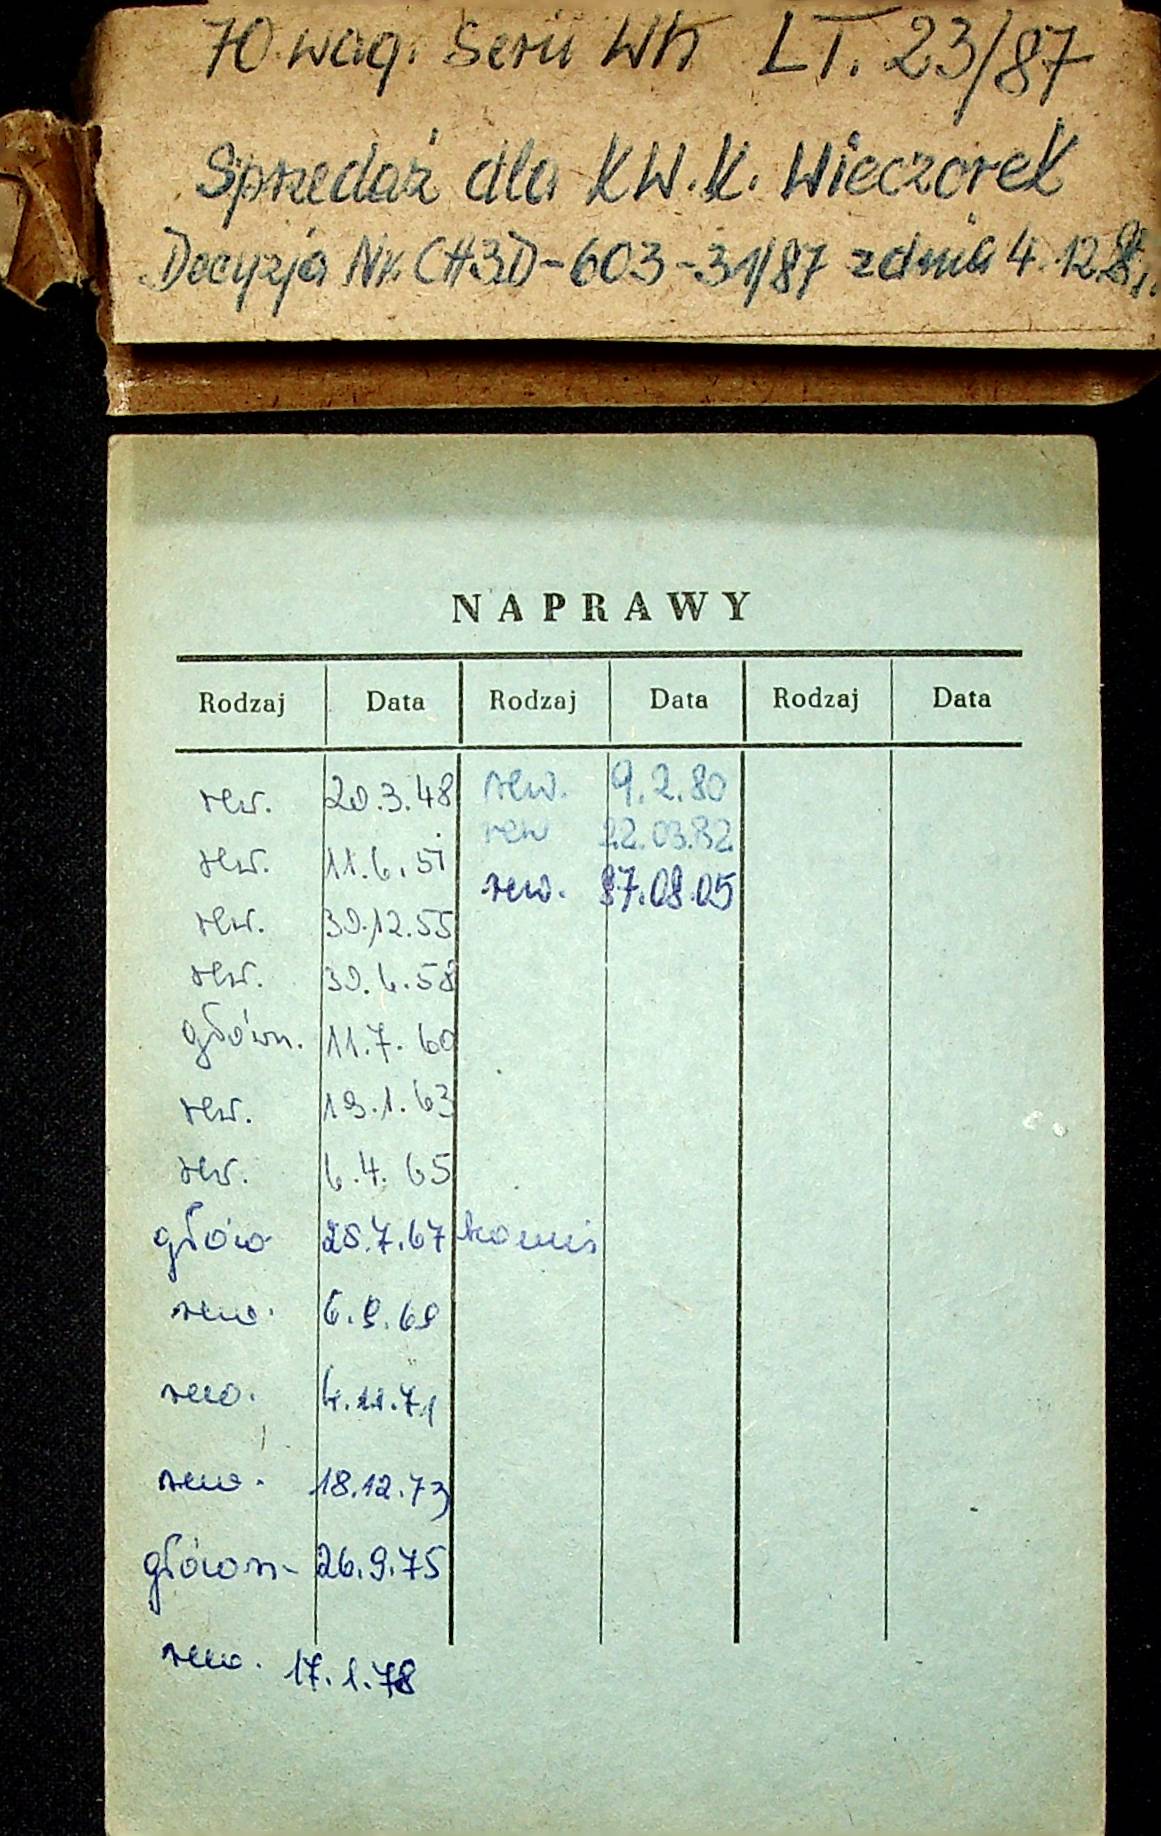 70 wag. Serii Wh LT. 23/87
Sprzedaż dla KW.K. Wieczorek
Decyzja Nr. CH3D-603-31/87 z dnia 4.12.87r.
NAPRAWY
Rodzaj Data Rodzaj Data Rodzaj Data
rew. 20.3.48 rew. 9.2.80
rew 22.03.82
rew. 11.6.51 rew. 87.08.05
rew. 30.12.55
rew. 30.6.58
główn. 11.7.60
rew. 19.1.63
rew. 6.4.65
głów 25.7.67
rew. 6.9.69
rew. 4.11.71
rew. 18.12.73
główn- 26.9.75
rew. 17.1.78